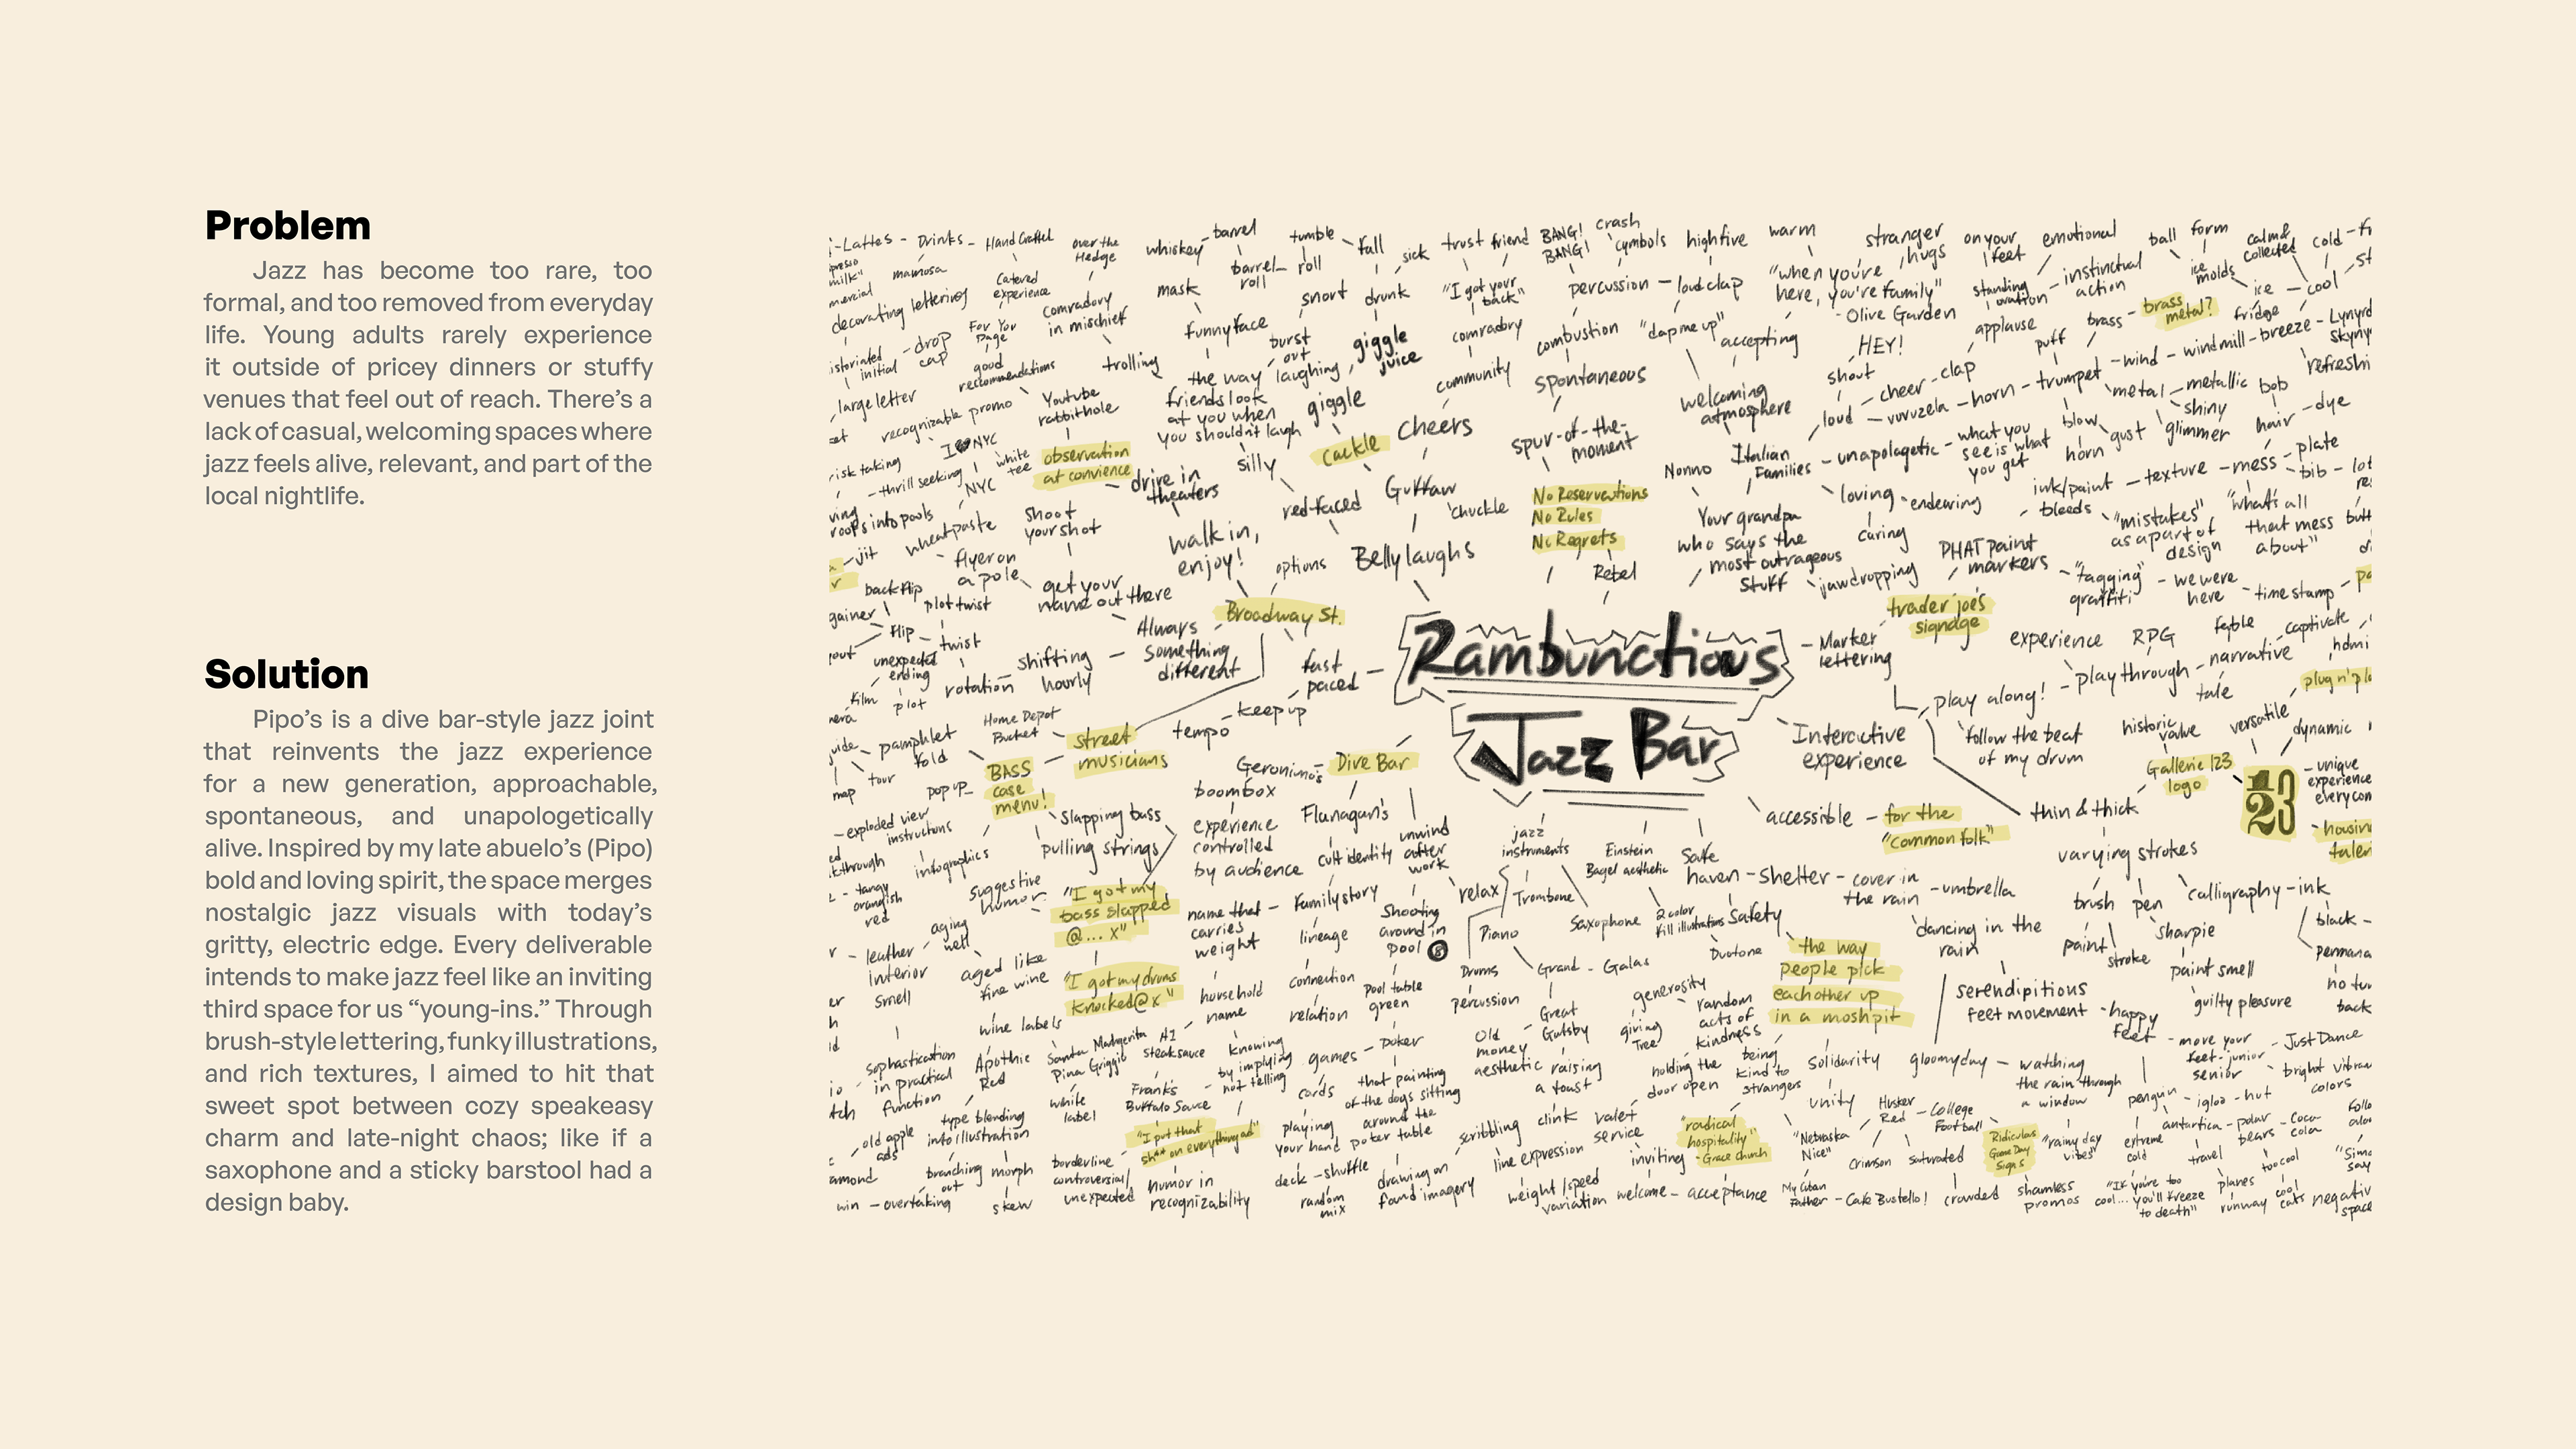 Problem
Jazz has become too rare, too
formal, and too removed from everyday
life. Young adults rarely experience
it outside of pricey dinners or stuffy
venues that feel out of reach. There's a
lack of casual, welcoming spaces where
jazz feels alive, relevant, and part of the
local nightlife.
Solution
Pipo's is a dive bar-style jazz joint
that reinvents the jazz experience
for a new generation, approachable,
spontaneous, and unapologetically
alive. Inspired by my late abuelo's (Pipo)
bold and loving spirit, the space merges
nostalgic jazz visuals with today's
gritty, electric edge. Every deliverable
intends to make jazz feel like an inviting
third space for us “young-ins.” Through
brush-style lettering, funky illustrations,
and rich textures, I aimed to hit that
sweet spot between cozy speakeasy
charm and late-night chaos; like if a
saxophone and a sticky barstool had a
design baby.
Rambunctious
Jazz Bar
Lattes - Drinks - Hand Crafted
over the
Hedge
whiskey
barrel
barrel
roll
tumble
roll
fall
sick
trust
friend
BANG!
BANG!
crash
cymbals
high five
warm
stranger
hugs
on your
feet
emotional
ball
form
calm &
collected
mamosa
Catered
experience
decorating lettering
comradory
in mischief
mask
snort
drunk
"I got your
back"
percussion - loud clap
"when you're
here, you're family"
- Olive Garden
standing
ovation
instinctual
action
ice
molds
ice - cool
drop
cap
For You
Page
good
reccommendations
trolling
funny face
burst
out
laughing
giggle
juice
comradory
combustion
"dap me up"
accepting
HEY!
applause
puff
brass - brass
metal?
fridge
large letter
recognizable promo
Youtube
rabbithole
the way
friends look
at you when
you shouldn't laugh
giggle
community
spontaneous
welcoming
atmosphere
shout
cheer - clap
loud - vuvuzela - horn - trumpet - wind - windmill - breeze
metal - metallic
bob
shiny
glimmer
hair - dye
risk taking
I NYC
white
tee
thrill seeking
NYC
observation
at convience
drive in
theaters
silly
cackle
cheers
spur-of-the-
moment
Nonno
Italian
Families - unapologetic - what you
see is what
you get
blow
horn
gust
wheatpaste
shoot
your shot
walk in,
enjoy!
red-faced
Guffaw
chuckle
No Reservations
No Rules
No Regrets
Rebel
loving
endearing
caring
ink/paint - texture - mess - plate
bleeds
bib
"mistakes"
as a part of
design
"what's all
that mess
about"
flyer on
a pole
options
Belly laughs
Your grandpa
who says the
most outrageous
stuff
jawdropping
PHAT paint
markers
"tagging"
graffiti
we were
here
time stamp
backflip
plot twist
get your
name out there
Broadway St.
trader joe's
signage
flip
twist
unexpected
ending
film
plot
rotation
shifting
hourly
Always
something
different
fast
paced
keep up
tempo
Marker
lettering
experience
RPG
fable
captivate
play along! - playthrough - narrative
tale
pamphlet
fold
Home Depot
Bucket
street
musicians
Interactive
experience
follow the beat
of my drum
historic
value
versatile
dynamic
map
tour
pop up
BASS
case
menu!
Geronimo's
Dive Bar
boombox
Gallerie 123
logo
123
unique
experience
exploded view
instructions
infographics
slapping bass
pulling strings
experience
controlled
by audience
Flanagan's
cult identity
unwind
after
work
jazz
instruments
Einstein
Bagel aesthetic
Safe
haven - shelter - cover in
the rain
umbrella
accessible - for the
"common folk"
thin & thick
varying strokes
tangy
orangish
red
suggestive
humor
"I got my
bass slapped
@... x"
name that
carries
weight
Family story
lineage
Shooting
around in
pool
8
relax
Trombone
Saxophone
2 color
fill illustrations
Safety
Duotone
dancing in the
rain
brush
pen
calligraphy - ink
black
sharpie
paint
stroke
paint smell
leather
interior
smell
aging
well
aged like
fine wine
"I got my drums
knocked @ x"
household
name
connection
relation
Pool table
green
Piano
Drums
percussion
Grand - Galas
the way
people pick
eachother up
in a moshpit
serendipitious
feet movement
happy
feet
guilty pleasure
wine labels
Apothic
Red
Santa Margerita
Pina Griggio
A1
steaksauce
knowing
by implying
not telling
games - poker
Old
money
aesthetic
Great
Gatsby
raising
a toast
generosity
giving
Tree
random
acts of
kindness
holding the
door open
being
kind to
strangers
Solidarity
gloomyday - watching
the rain through
a window
move your
feet - junior
senior
Just Dance
sophastication
in practical
function
white
label
Frank's
Buffalo Sauce
cards
that painting
of the dogs sitting
around the
poker table
unity
Husker
Red
College
Football
penguin - igloo - hut
colors
old apple
ads
type blending
into illustration
"I put that
sh** on everything ad"
playing
your hand
scribbling
clink
valet
service
"radical
hospitality"
- Grace church
"Nebraska
Nice"
Crimson
saturated
Ridiculous
Game Day
Signs
"rainy day
vibes"
extreme
cold
antartica - polar
bears
Coca-
cola
travel
too cool
branching
out
morph
borderline
controversial/
unexpected
humor in
recognizability
deck - shuffle
random
mix
drawing on
found imagery
line expression
weight/speed
variation
inviting
welcome - acceptance
My Cuban
Father - Cafe Bustello!
crowded
shamless
promos
"If you're too
cool... you'll freeze
to death"
planes
runway
cool
cats
negativ
space
win - overtaking
skew